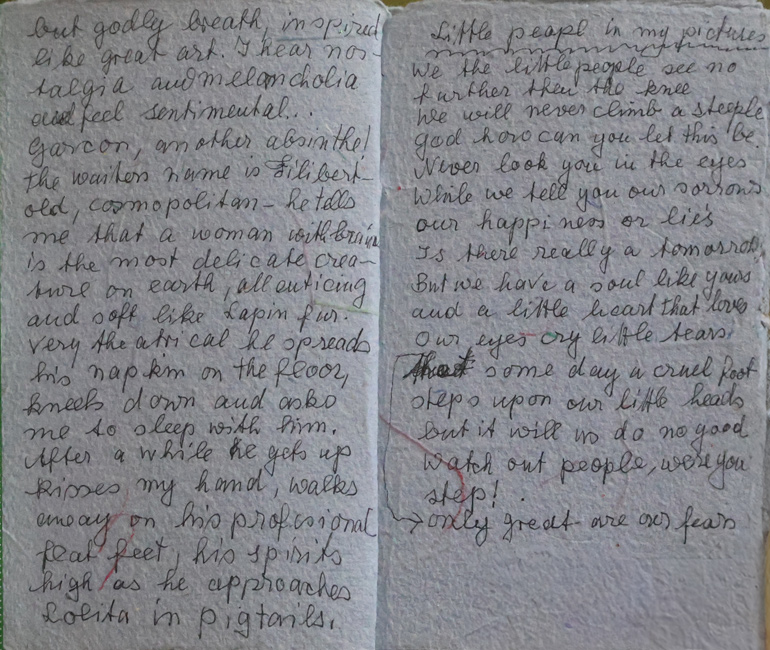 but godly breath, inspired
like great art. I hear nos-
talgia and melancholia
and feel sentimental...
Garcon, another absinthe!
the waiters name is Filibert-
old, cosmopolitan - he tells
me that a woman with brain
is the most delicate crea-
ture on earth, all enticing
and soft like Lapin fur.
Very theatrical he spreads
his napkin on the floor,
kneels down and asks
me to sleep with him.
After a while he gets up
kisses my hand, walks
away on his profesional
flat feet, his spirits
high as he approaches
Lolita in pigtails.
Little peapl in my pictures
We the little people see no
further then the knee
We will never climb a steeple
god how can you let this be.
Never look you in the eyes
While we tell you our sorrows
our happiness or lies
Is there really a tomorrow
But we have a soul like yours
and a little heart that loves
Our eyes cry little tears
some day a cruel foot
steps upon our little heads
but it will us do no good
Watch out people, were you
step!
→ only great are our fears